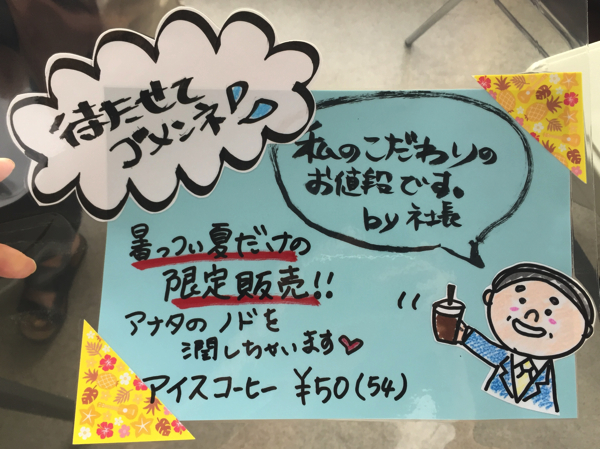 待たせて
ゴメンネ
私のこだわりの
お値段です。
by 社長
暑っつい夏だけの
限定販売!!
アナタのノドを
潤しちゃいます♥
アイスコーヒー ¥50(54)